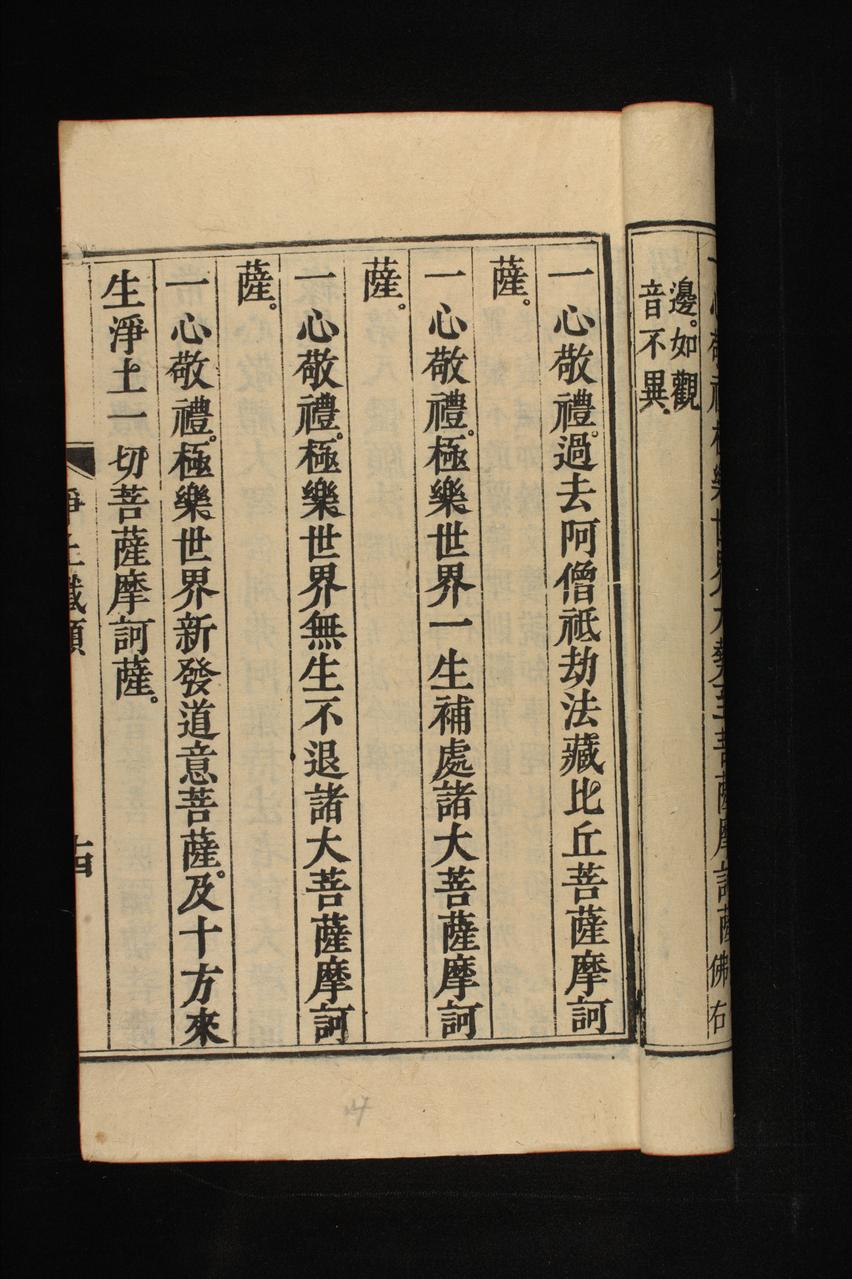 一心敬禮極樂世界大勢至菩薩摩訶薩佛右
邊。如觀
音不異。
一心敬禮。過去阿僧祇劫法藏比丘菩薩摩訶
薩。
一心敬禮。極樂世界一生補處諸大菩薩摩訶
薩。
一心敬禮。極樂世界無生不退諸大菩薩摩訶
薩。
一心敬禮。極樂世界新發道意菩薩。及十方來
生淨土一切菩薩摩訶薩。
淨土懺願
十四